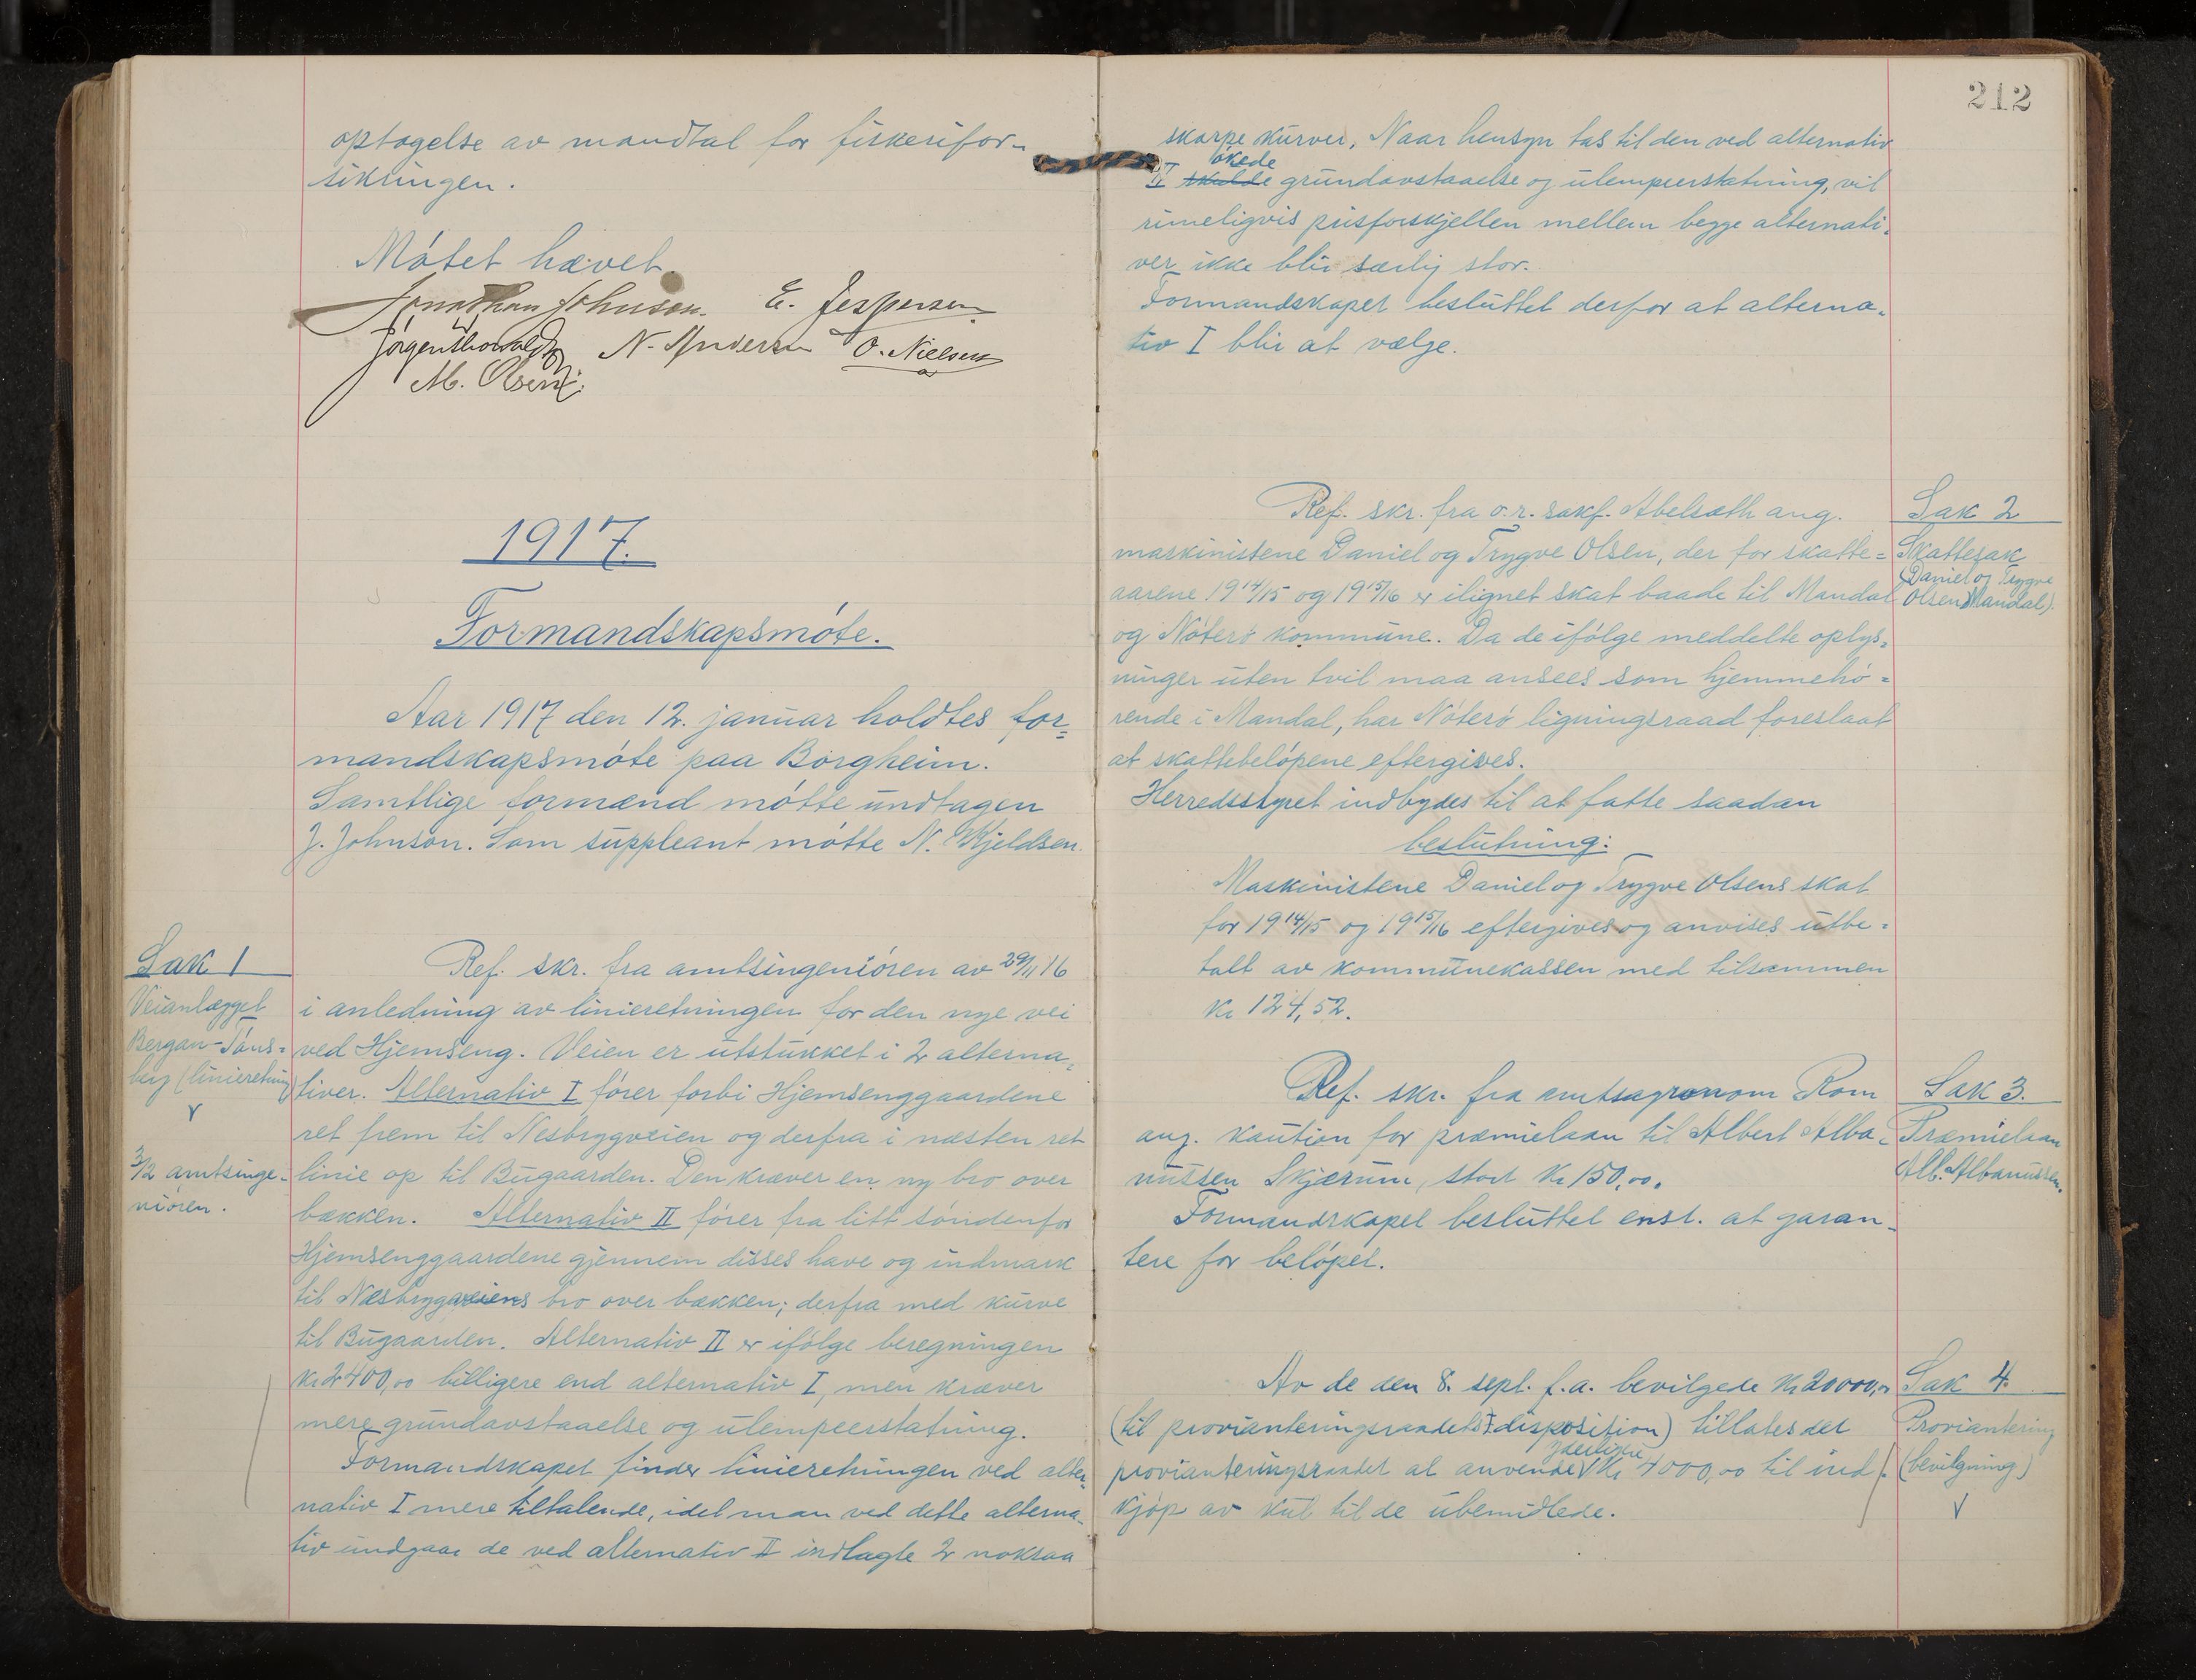 optagelse av mandtal for fiskerifor-
sikringen.
Møtet hævet.
Jonathan Johnson. E. Jespersen
N. Andersen O. Nielsen
M. Olsen
1917.
Formandskapsmøte.
Aar 1917 den 12. januar holdtes for=
mandskapsmøte paa Borgheim.
Samtlige formænd møtte undtagen
J. Johnson. Som suppleant møtte N. Kjeldsen.
Sak 1
Veianlægget
Bergan-Tøns=
berg (linieretning)
V
3/2 amtsinge-
niøren.
Ref. skr. fra amtsingeniøren av 29/11 16
i anledning av linieretningen for den nye vei
ved Hjemseng. Veien er utstukket i 2 alterna=
tiver. Alternativ I fører forbi Hjemsenggaardene
ret frem til Nesbryggveien og derfra i næsten ret
linie op til Bugaarden. Den kræver en ny bro over
bækken. Alternativ II fører fra litt søndenfor
Hjemsenggaardene gjennem disses have og indmark
til Næsbryggveiens bro over bækken; derfra med kurve
til Bugaarden. Alternativ II er ifølge beregningen
Kr 2400,00 billigere end alternativ I, men kræver
mere grundavstaaelse og ulempeerstatning.
Formandskapet finder linieretningen ved alter=
nativ I mere tiltalende, idet man ved dette alterna-
tiv undgaar de ved alternativ II indlagte 2 noksaa
212
skarpe kurver. Naar hensyn tas til den ved alternativ
økede
II skulde grundavstaaelse og ulempeerstatning, vil
rimeligvis prisforskjellen mellem begge alternati-
ver ikke bli særlig stor.
Formandskapet besluttet derfor at alterna-
tiv I blir at vælge.
Sak 2
Skattesak
Daniel og Trygve
Olsen (Mandal).
Ref. skr. fra o.r. sakf. Abelsæth ang.
maskinistene Daniel og Trygve Olsen, der for skatte=
aarene 1914/15 og 1915/16 er ilignet skat baade til Mandal
og Nøterø kommune. Da de ifølge meddelte oplys=
ninger uten tvil maa ansees som hjemmehø=
rende i Mandal, har Nøterø ligningsraad foreslaat
at skattebeløpene eftergives.
Herredsstyret indbydes til at fatte saadan
beslutning:
Maskinistene Daniel og Trygve Olsens skat
for 1914/15 og 1915/16 eftergives og anvises utbe=
talt av kommunekassen med tilsammen
Kr 124,52.
Sak 3.
Præmielaan
Alb. Albanussen.
Ref. skr. fra amtsagronom Rom
ang. kaution for præmielaan til Albert Alba-
nussen Skjærum, stort Kr 150,00.
Formandskapet besluttet enst. at garan-
tere for beløpet.
Sak 4.
Proviantering
(bevilgning)
V
Av de den 8. sept. f.a. bevilgede Kr 20000,00
(til provianteringsraadets disposition) tillates det
yderligere
provianteringsraadet at anvende V Kr 4000,00 til ind-
kjøp av kul til de ubemidlede.